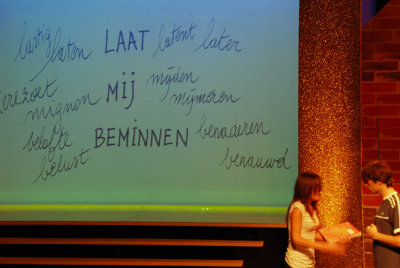 lastig
laten LAAT latent later
mignon MIJ mijden
mijmeren
belofte BEMINNEN benaderen
belust benauwd